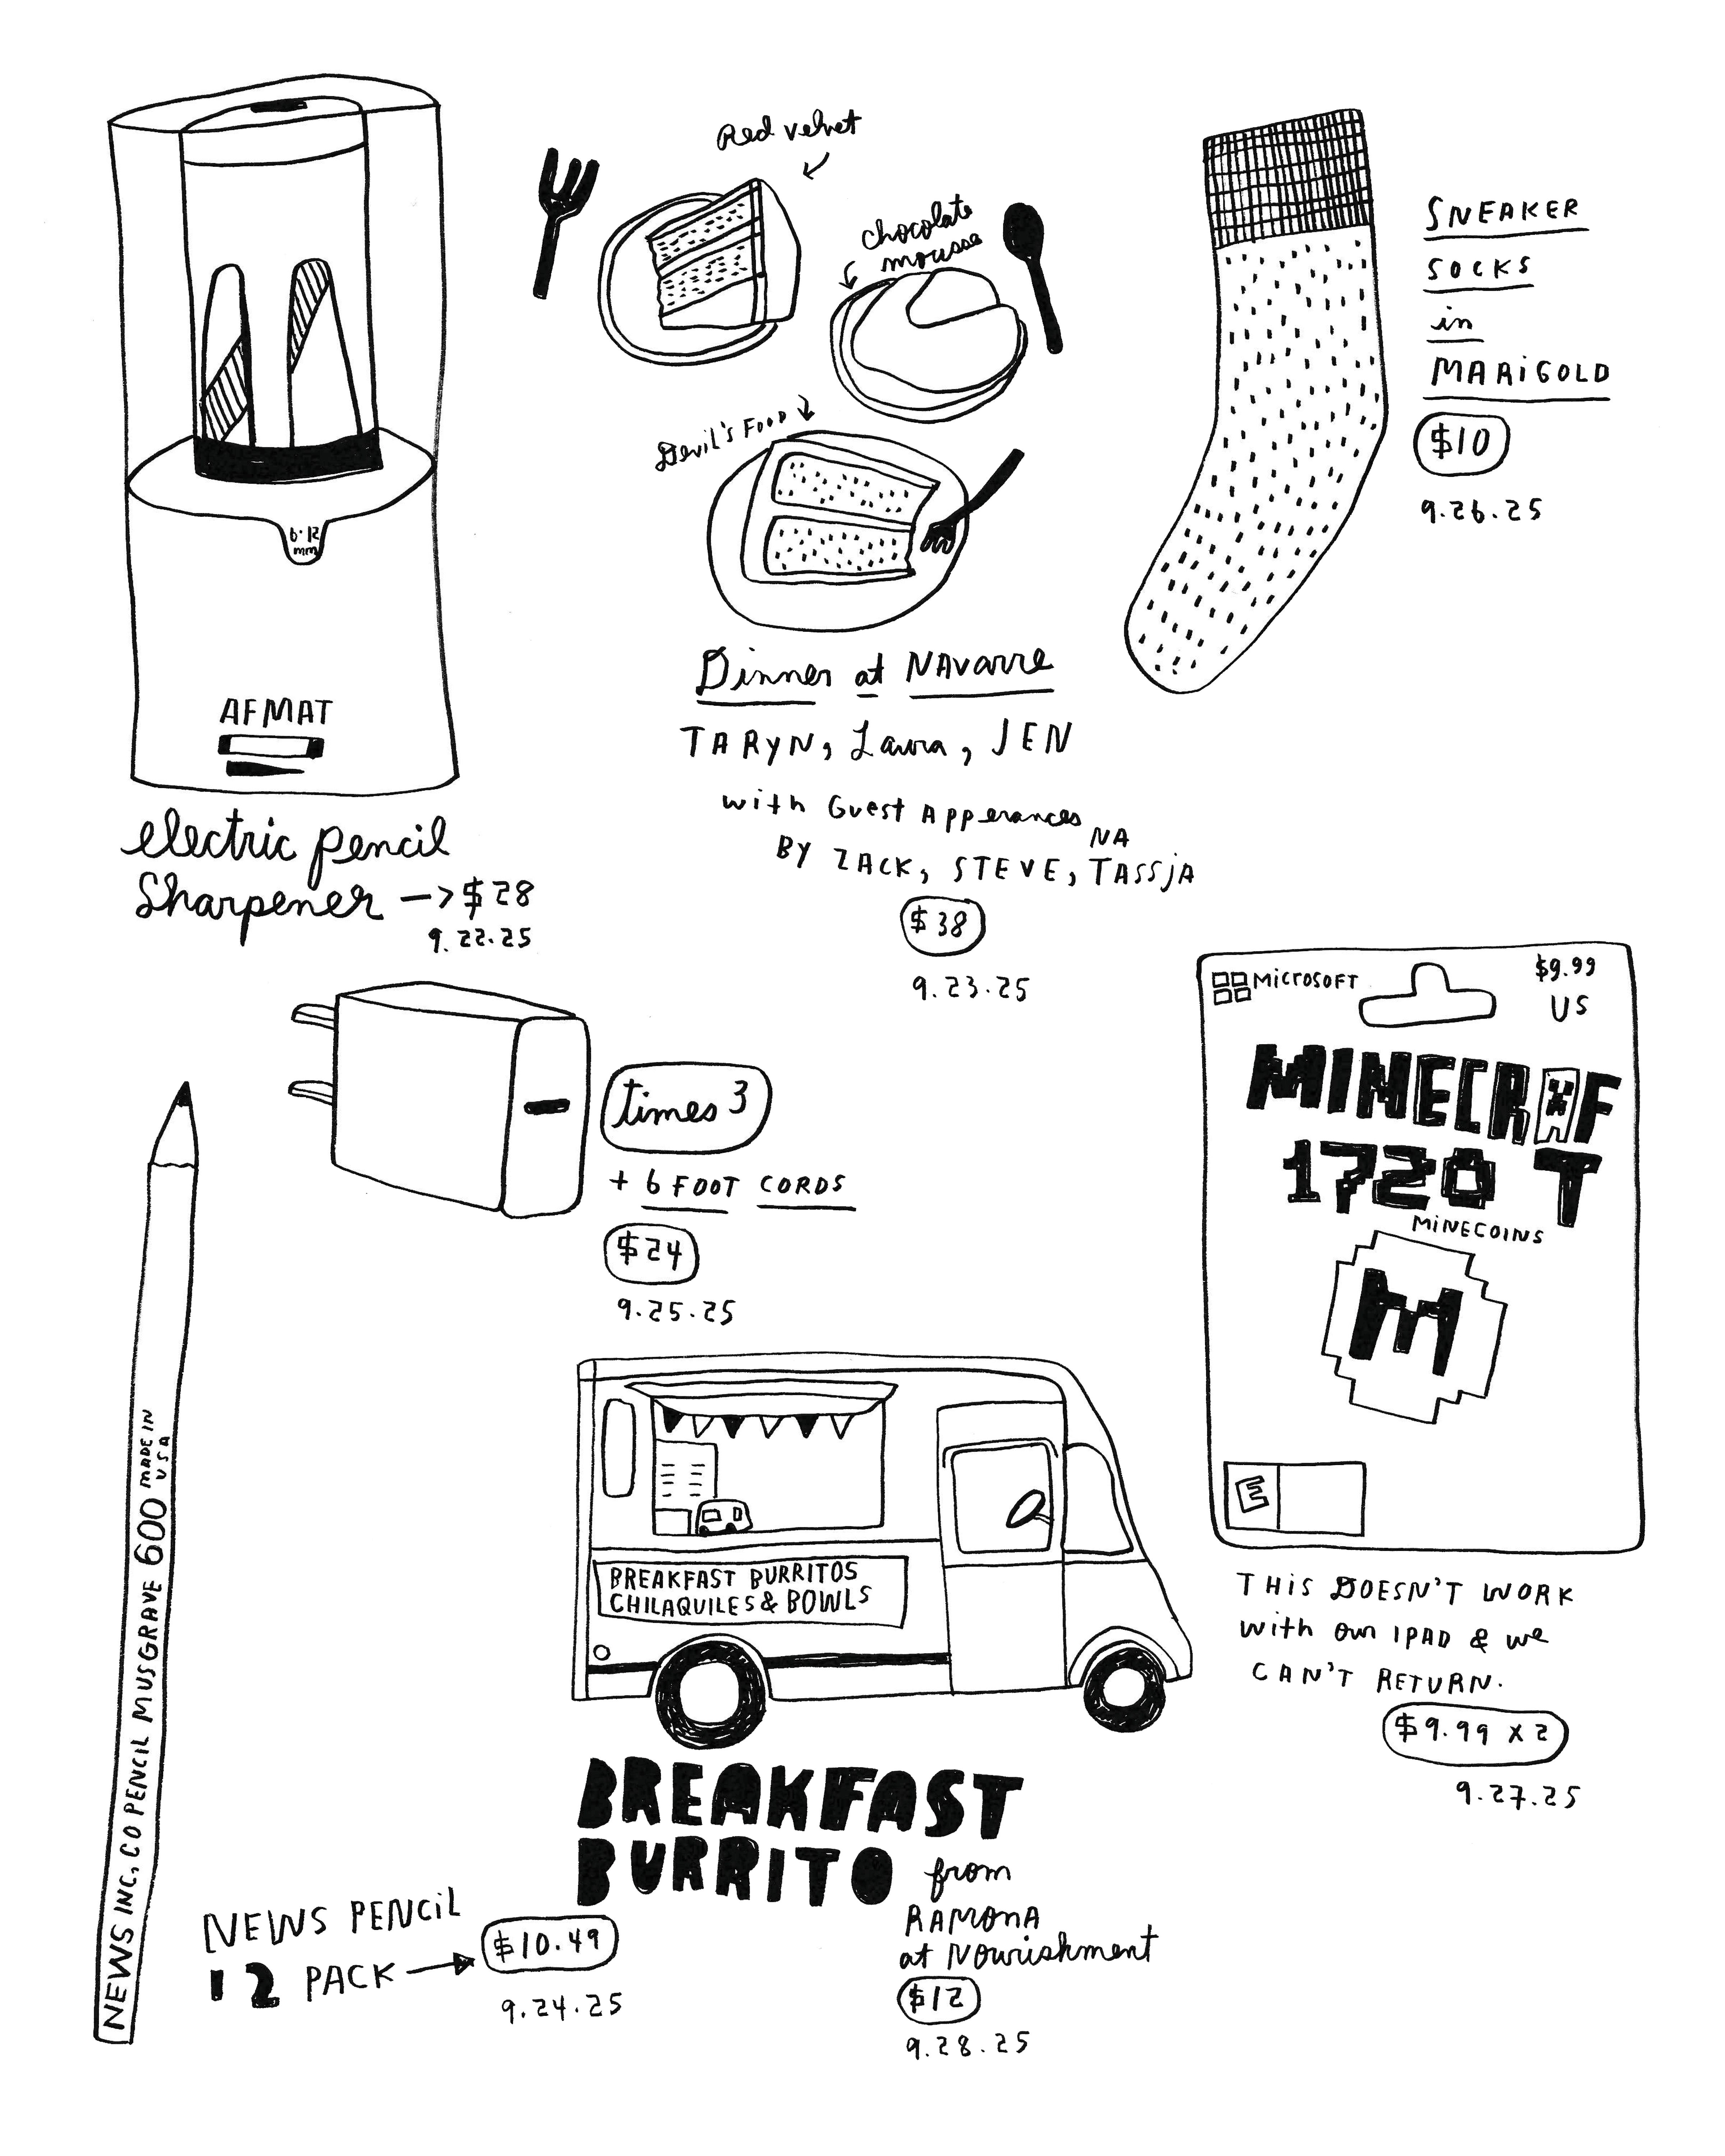 6·12
mm
AFMAT
electric pencil
Sharpener —> $28
9.22.25
Red velvet
chocolate
mousse
Devil's Food
Dinner at NAvarre
TARYN, Laura, JEN
with Guest Apperances
BY ZACK, STEVE, TASSJA
NA
$38
9.23.25
SNEAKER
SOCKS
in
MARIGOLD
$10
9.26.25
times 3
+ 6 FOOT CORDS
$24
9.25.25
MICROSOFT
$9.99
US
MINECRAF
1720 T
MINECOINS
M
E
THIS DOESN'T WORK
with our IPAD & we
CAN'T RETURN.
$9.99 X 2
9.27.25
NEWS INC. CO PENCIL MUSGRAVE 600 MADE IN
USA
NEWS PENCIL
12 PACK
$10.49
9.24.25
BREAKFAST BURRITOS
CHILAQUILES & BOWLS
BREAKFAST
BURRITO from
RAMONA
at Nourishment
$12
9.28.25